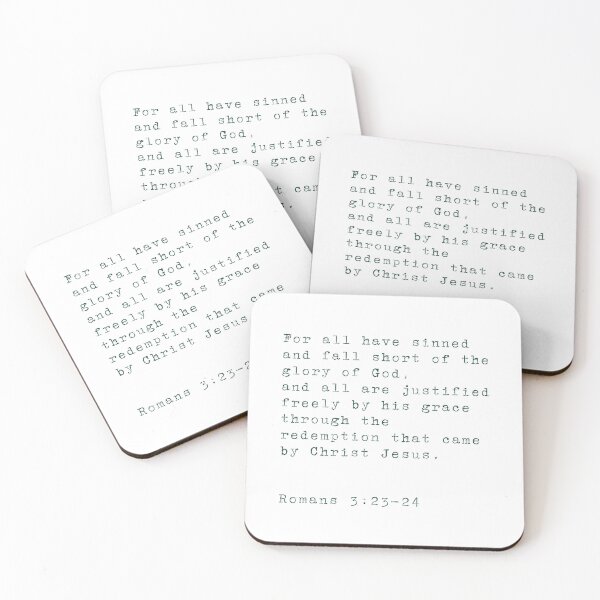 For all have sinned
and fall short of the
glory of God,
and all are justified
freely by his grace
came
For all have sinned
and fall short of the
glory of God,
and all are justified
freely by his grace
through the
redemption that came
by Christ Jesus.
For all have sinned
and fall short of the
glory of God,
and all are justified
freely by his grace
through the
redemption that came
by Christ Jesus.
Romans 3:23-2
For all have sinned
and fall short of the
glory of God,
and all are justified
freely by his grace
through the
redemption that came
by Christ Jesus.
Romans 3:23-24